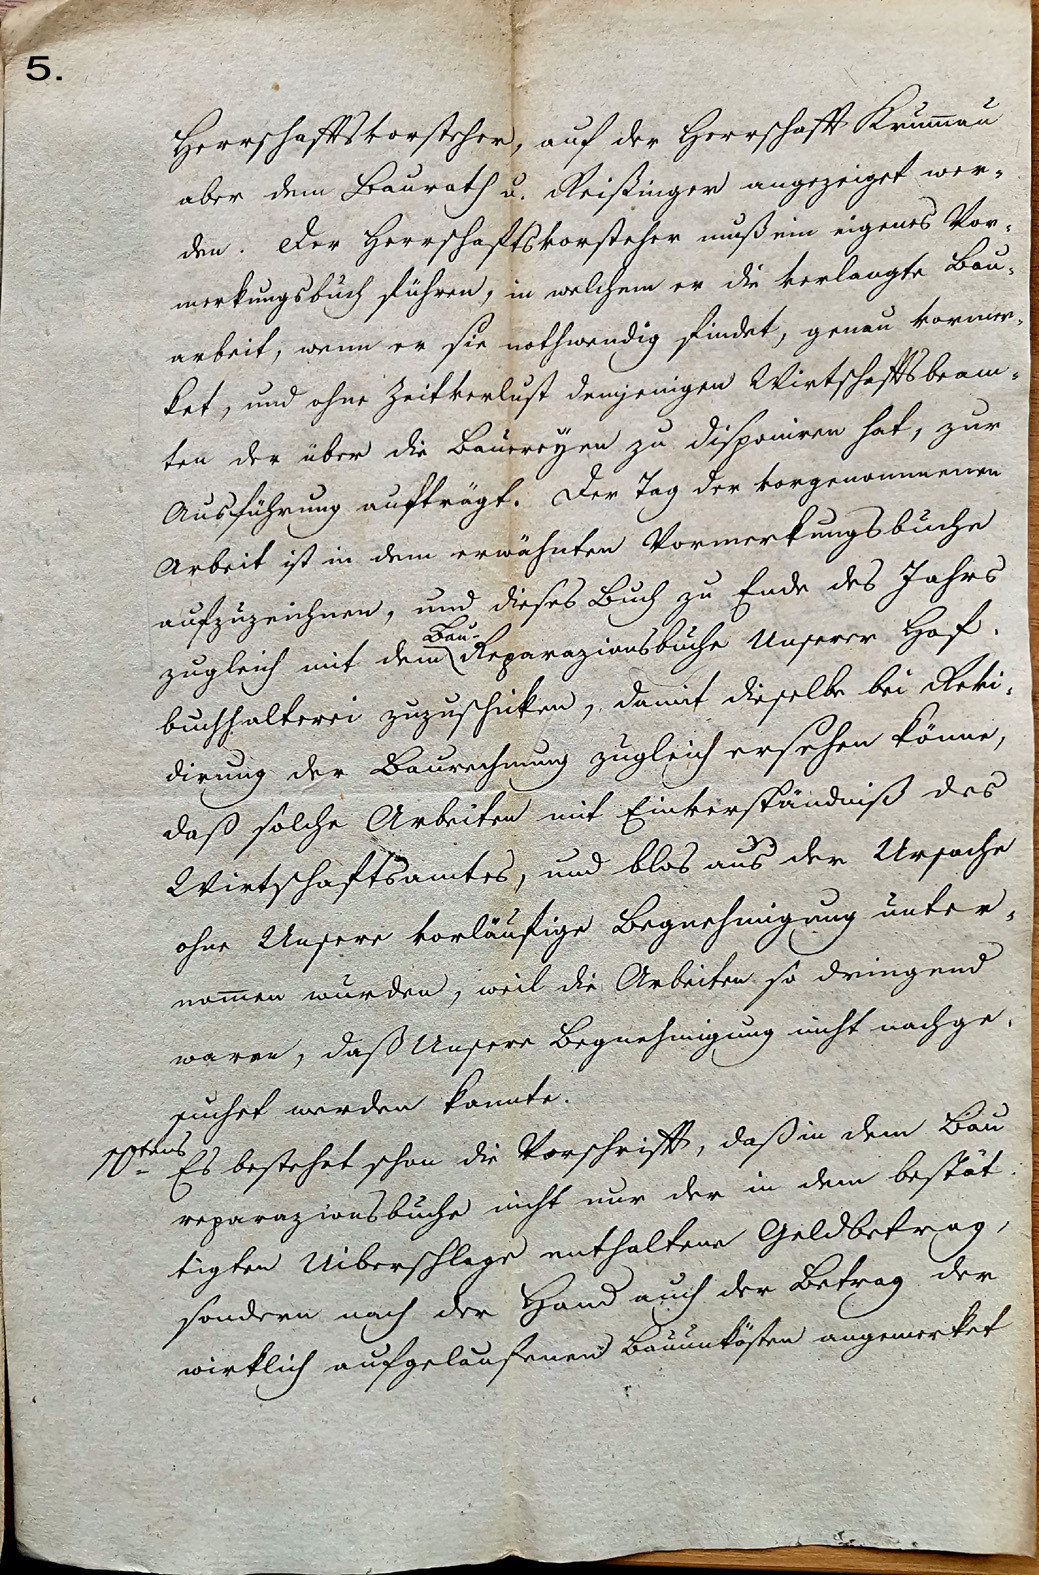 5.
Herrschaftsvorsteher, auf der Herrschaft Krum̅au
aber dem Baurath v. Reißinger angezeiget wer-
den. Der Herrschaftsvorsteher muß ein eigenes Vor-
merkungsbuch führen, in welchem er die verlangte Bau-
arbeit, wenn er sie nothwendig findet, genau vormer-
ket, und ohne Zeitverlust demjenigen Wirtschaftsbeam-
ten der über die Bauereÿen zu disponiren hat, zur
Ausführung aufträgt. Der Tag der vorgenommenen
Arbeit ist in dem erwähnten Vormerkungsbuche
aufzuzeichnen, und dieses Buch zu Ende des Jahrs
Bau-
zugleich mit dem Reparazionsbuche Unserer Hof-
buchhalterei zuzuschiken, damit dieselbe bei Revi-
dirung der Baurechnung zugleich ersehen könne,
daß solche Arbeiten mit Einverständniß des
Wirtschaftsamtes, und blos aus der Ursache
ohne Unsere vorläufige Begnehmigung unter-
nom̅en wurden, weil die Arbeiten so dringend
waren, daß Unsere Begnehmigung nicht nachge-
suchet werden konnte.
10tens Es bestehet schon die Vorschrift, daß in dem Bau
reparazionsbuche nicht nur der in dem bestät-
tigten Uiberschlage enthaltene Geldbetrag,
sondern nach der Hand auch der Betrag der
wirklich aufgelaufenen Bauunkösten angemerket